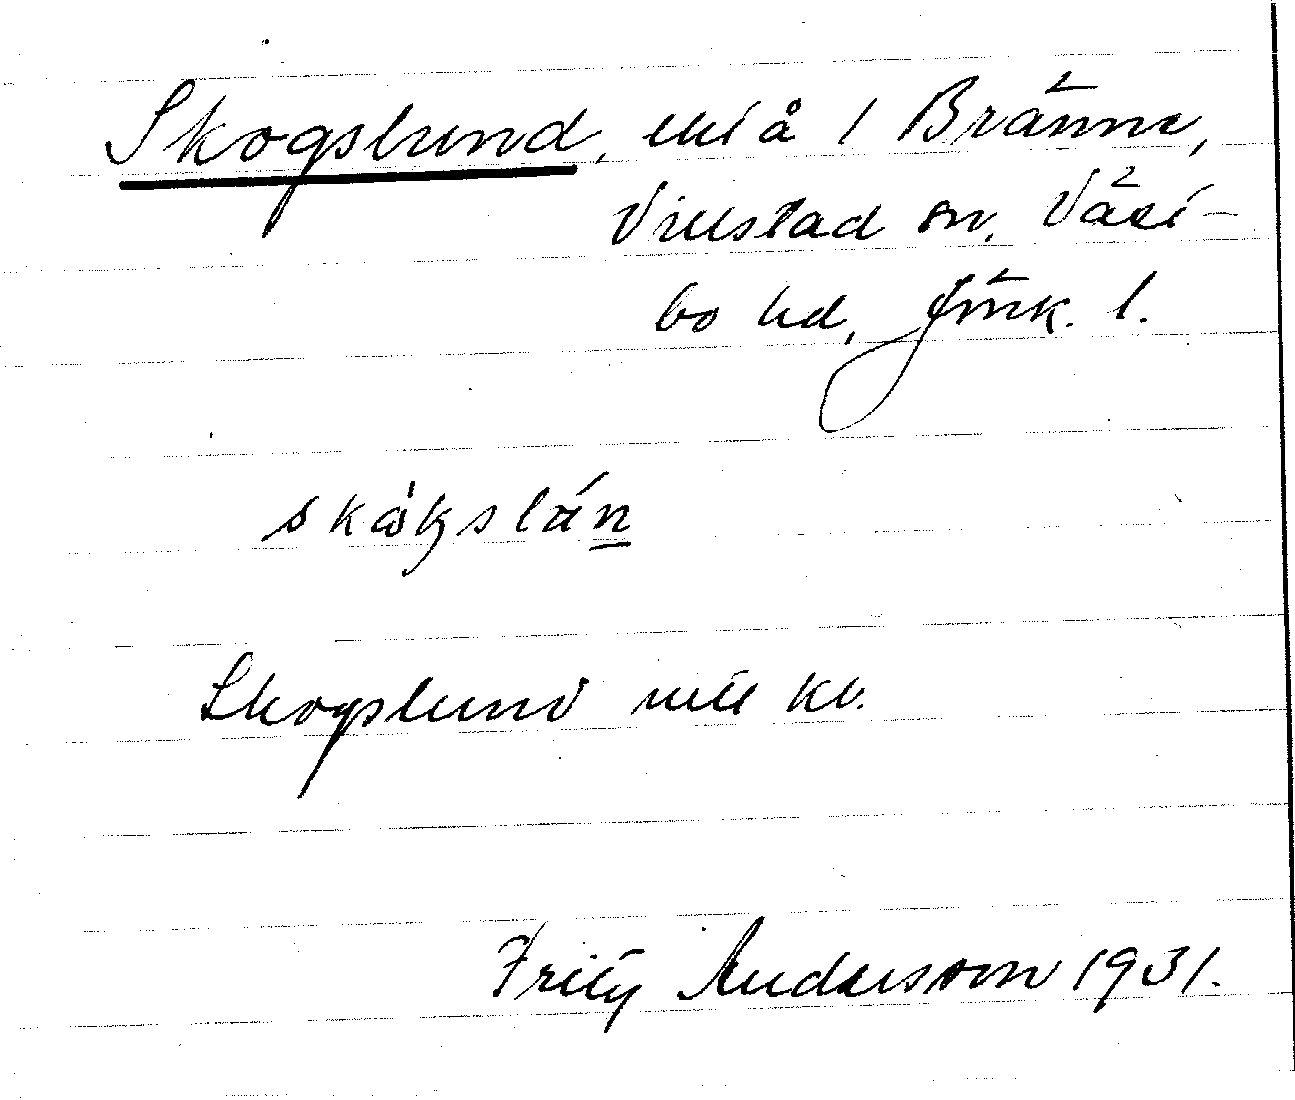 Skogslund, ut å 1 Bränne,
Villstad sn, Väst-
bo hd, Jönk. l.
skåkslán
Skogslund
Fritz Andersson 1931.